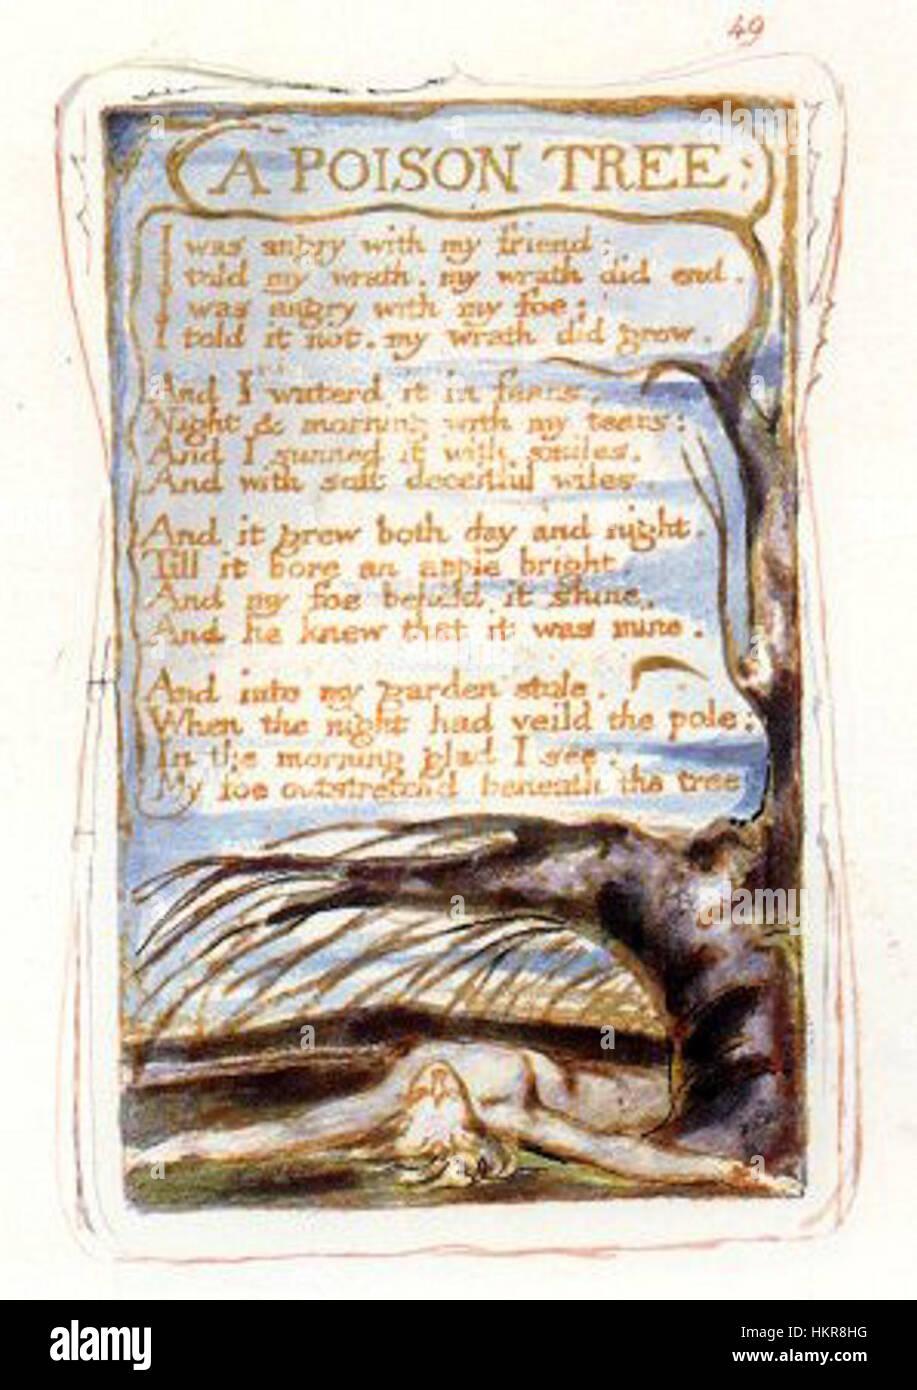 49
A POISON TREE:
I was angry with my friend:
I told my wrath. my wrath did end.
I was angry with my foe:
I told it not. my wrath did grow.
And I waterd it in fears.
Night & morning with my tears:
And I sunned it with smiles.
And with soft deceitful wiles.
And it grew both day and night.
Till it bore an apple bright.
And my foe beheld it shine.
And he knew that it was mine.
And into my garden stole.
When the night had veild the pole:
In the morning glad I see:
My foe outstretchd beneath the tree
alamy
Image ID: HKR8HG
www.alamy.com